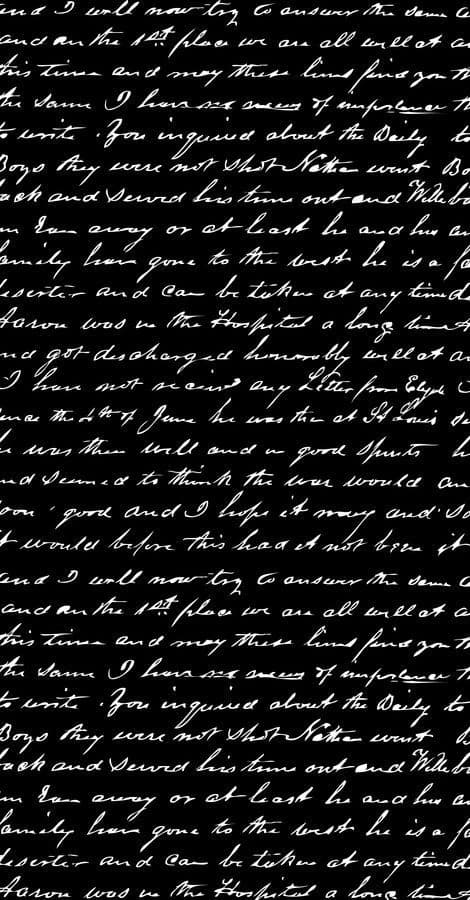 and I will now try to answer the same
and in the 1st place we are all well at
this time and may these lines find you
the same I have no news of importance
to write. You inquired about the Daily to
Boys they were not shot Nathan went Bo
back and served his time out and Will
Ran away or at least he and his
family have gone to the west he is a
deserter and can be taken at any time
Aaron was in the Hospital a long time
and got discharged honorably well at
I have not receivd any Letter from
since the 4th of June he was then at St Louis
he was then well and in good spirits h
and seemed to think the war would
soon good and I hope it may and so
it would before this had it not been it
and I will now try to answer the same
and in the 1st place we are all well at
this time and may these lines find you
the same I have no news of importance
to write. You inquired about the Daily to
Boys they were not shot Nathan went
back and served his time out and Will
Ran away or at least he and his
family have gone to the west he is a
deserter and can be taken at any time
Aaron was in the Hospital a long time